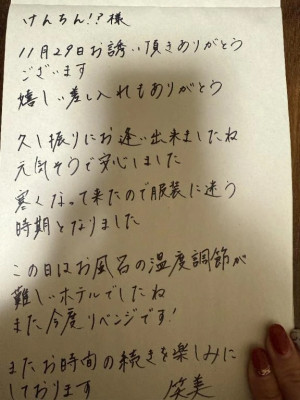 けんちん!?様
11月29日お誘い頂きありがとう
ございます
嬉しい差し入れもありがとう
久し振りにお逢い出来ましたね
元気そうで安心しました
寒くなって来たので服装に迷う
時期となりました
この日はお風呂の温度調節が
難しいホテルでしたね
また今度リベンジです!
またお時間の続きを楽しみに
しております 笑美